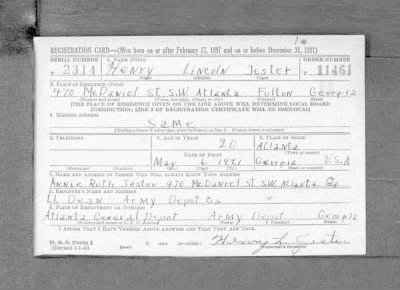 REGISTRATION CARD—(Men born on or after February 17, 1897 and on or before December 31, 1921)
SERIAL NUMBER 1. NAME (Print) ORDER NUMBER
T 2314 Henry Lincoln Jester 11461
(First) (Middle) (Last)
2. PLACE OF RESIDENCE (Print)
470 McDaniel St. S.W. Atlanta Fulton Georgia
(Number and street) (Town, township, village, or city) (County) (State)
[THE PLACE OF RESIDENCE GIVEN ON THE LINE ABOVE WILL DETERMINE LOCAL BOARD
JURISDICTION; LINE 2 OF REGISTRATION CERTIFICATE WILL BE IDENTICAL]
3. MAILING ADDRESS
Same
[Mailing address if other than place indicated on line 2. If same insert word same]
4. TELEPHONE 5. AGE IN YEARS 6. PLACE OF BIRTH
20 Atlanta
DATE OF BIRTH (Town or county)
May 6 1921 Georgia U.S.A
(Exchange) (Number) (Mo.) (Day) (Yr.) (State or country)
7. NAME AND ADDRESS OF PERSON WHO WILL ALWAYS KNOW YOUR ADDRESS
Annie Ruth Jester 470 McDaniel St. S.W. Atlanta Ga
8. EMPLOYER'S NAME AND ADDRESS
Lt. Dean Army Depot Ga
9. PLACE OF EMPLOYMENT OR BUSINESS
Atlanta General Depot Army Depot Georgia
(Number and street or R. F. D. number) (Town) (County) (State)
I AFFIRM THAT I HAVE VERIFIED ABOVE ANSWERS AND THAT THEY ARE TRUE.
D. S. S. FORM 1
(Revised 1-1-42) (over) Henry L. Jester
(Registrant's signature)